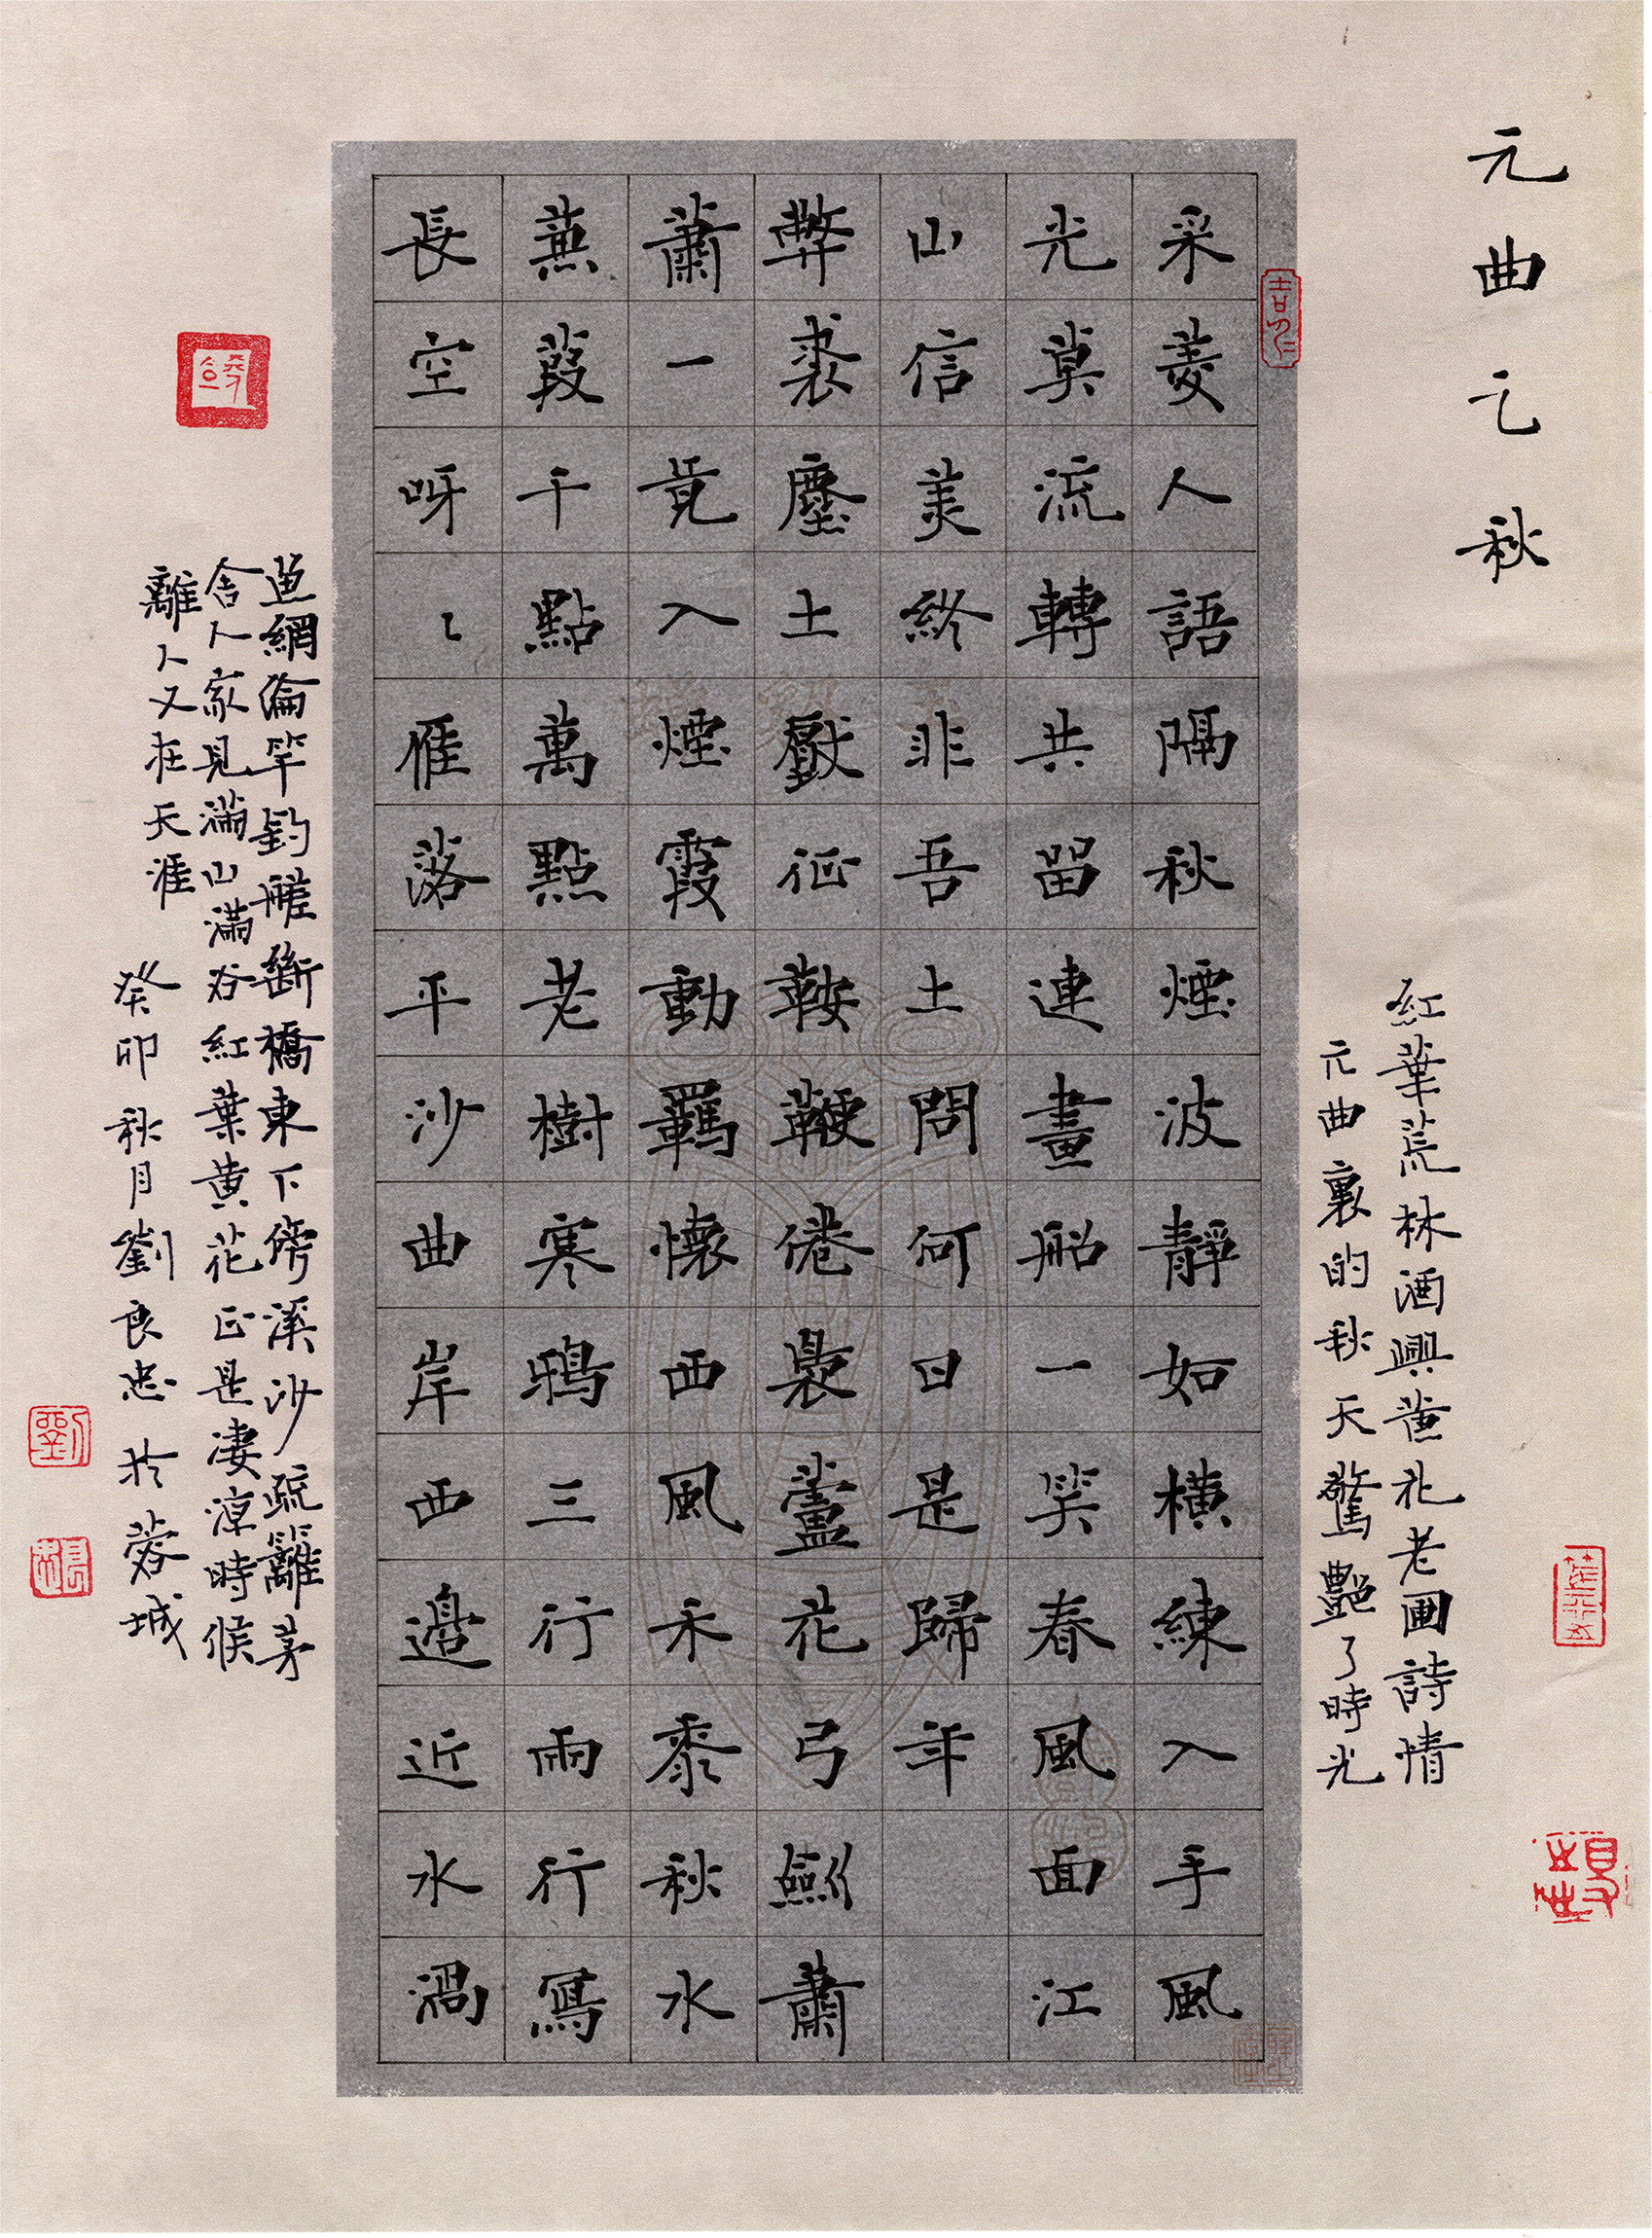 元曲之秋
紅葉荒林酒興黃花老圃詩情
元曲裏的秋天驚艷了時光
采菱人語隔秋煙波靜如橫練入手風
光莫流轉共留連畫船一笑春風面江
山信美終非吾土問何日是歸年
弊裘塵土壓征鞍鞭倦裊蘆花弓劍蕭
蕭一竟入煙霞動羈懷西風禾黍秋水
蒹葭千點萬點老樹寒鴉三行兩行寫
長空呀〻雁落平沙曲岸西邊近水渦
魚網綸竿釣艖斷橋東下傍溪沙疏籬茅
舍人家見滿山滿谷紅葉黃花正是凄涼時候
離人又在天涯
癸卯秋月劉良忠於蓉城
劉